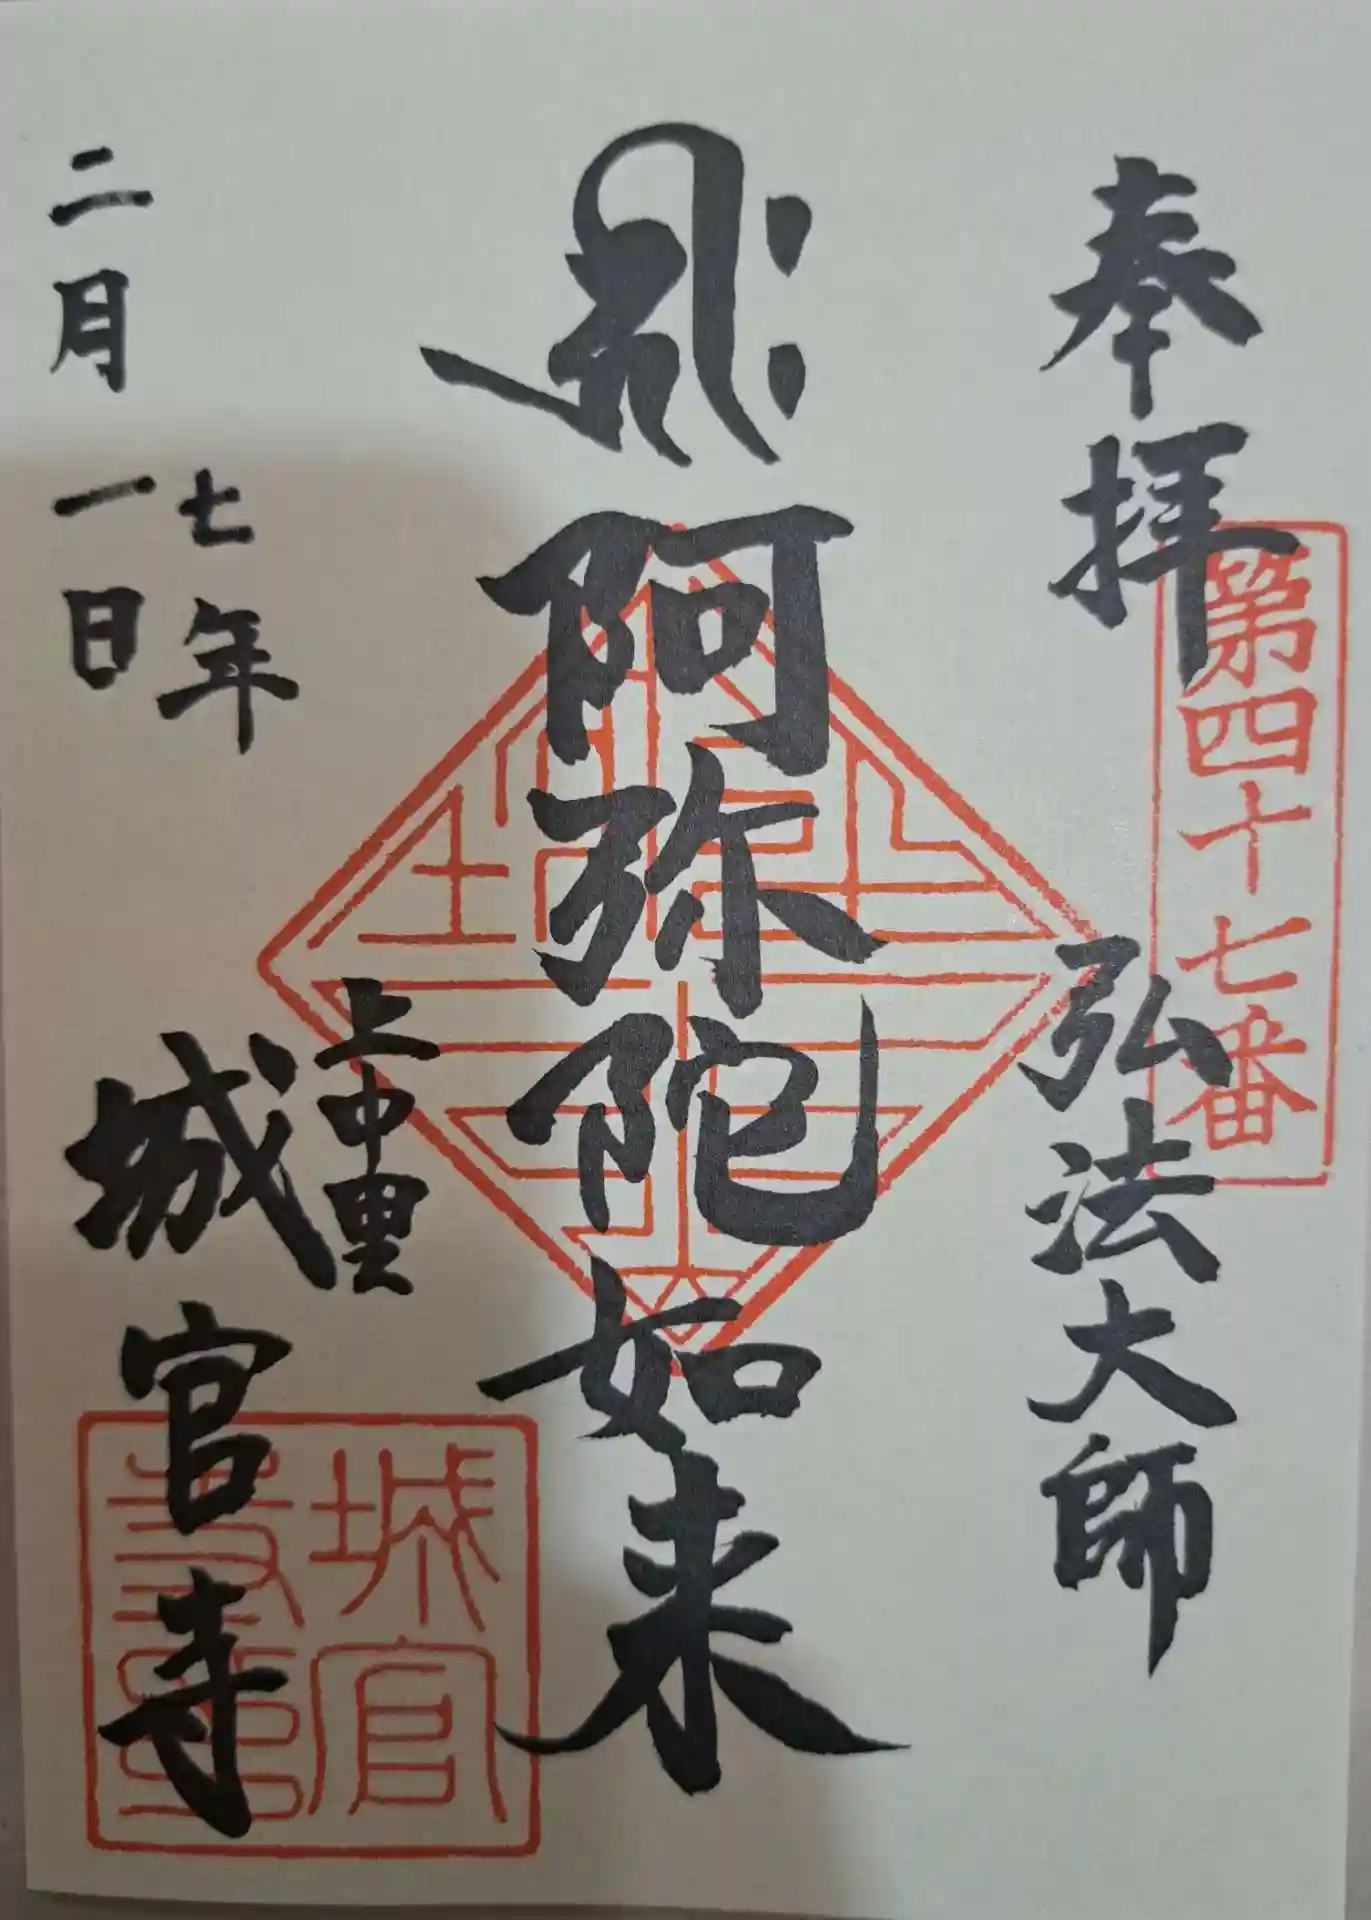 奉拝
第四十七番
弘法大師
𑖮𑖿𑖨𑖱𑖾
阿弥陀如来
上中里
城官寺
七年
二月一日
城官
寺